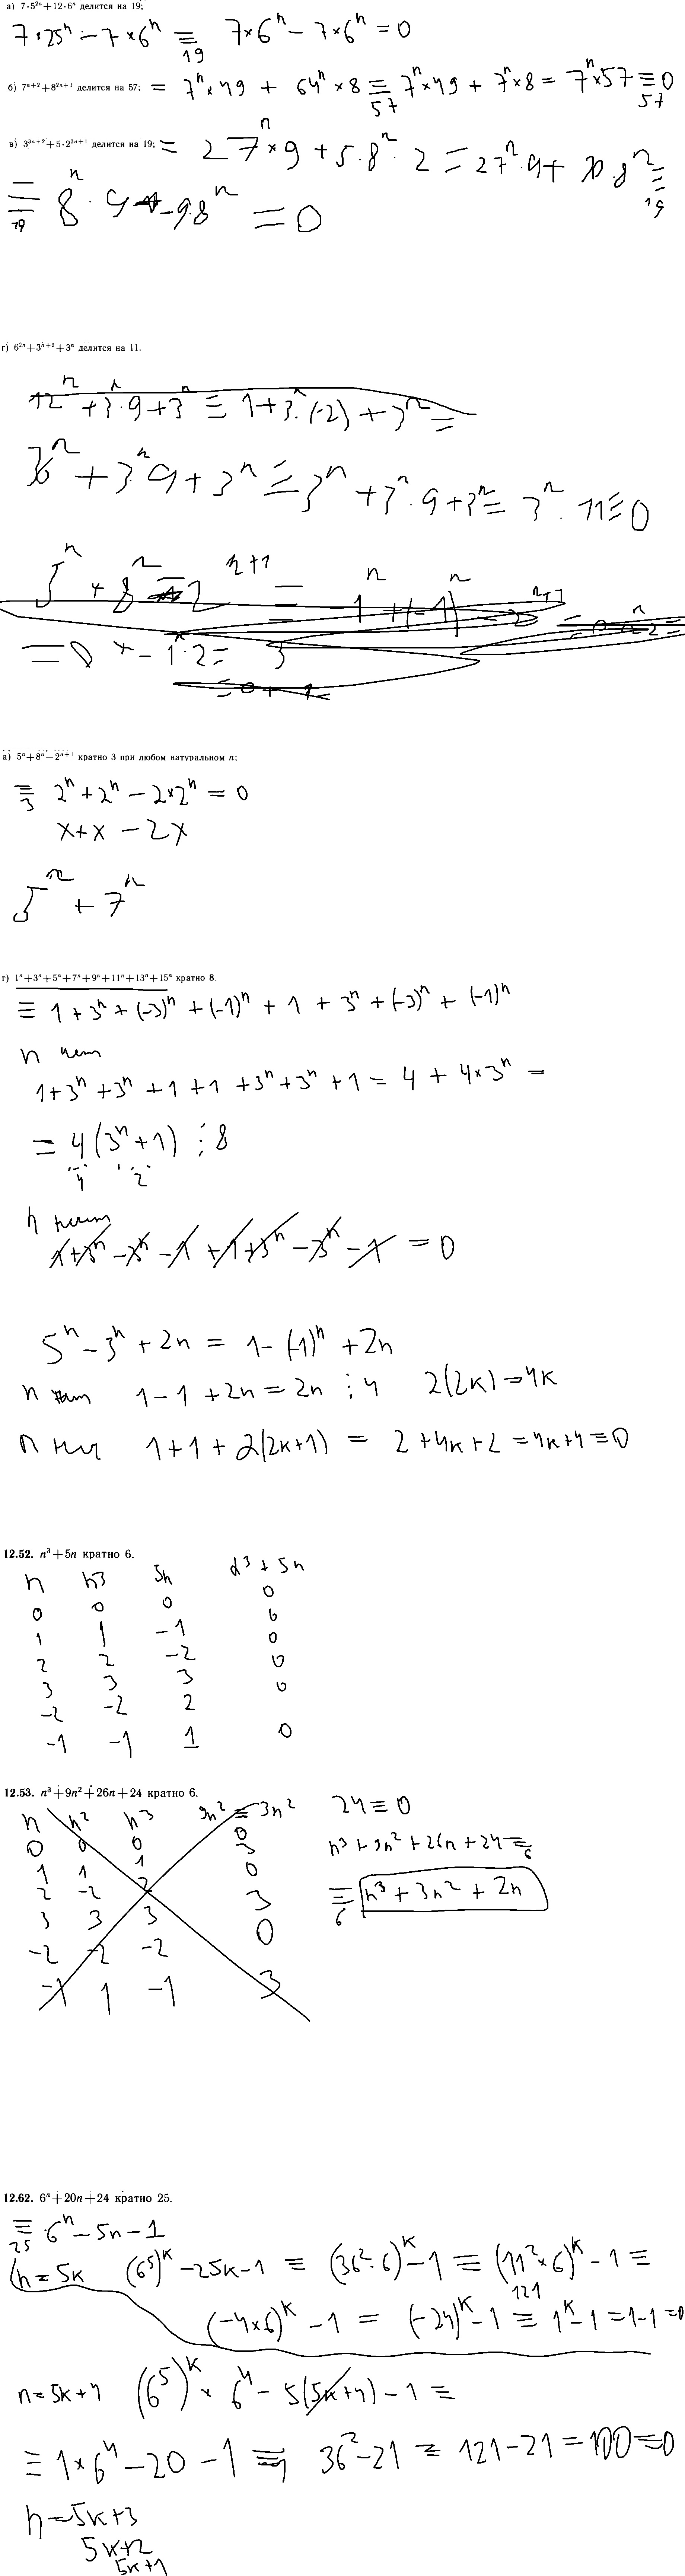 а) 7·5²ⁿ+12·6ⁿ делится на 19;
7×25ⁿ − 7×6ⁿ ≡ 7×6ⁿ − 7×6ⁿ = 0
19
б) 7ⁿ⁺²+8²ⁿ⁺¹ делится на 57; = 7ⁿ×49 + 64ⁿ×8 ≡ 7ⁿ×49 + 7ⁿ×8 = 7ⁿ×57 ≡ 0
57 57
в) 3³ⁿ⁺²+5·2³ⁿ⁺¹ делится на 19; = 27ⁿ×9 + 5·8ⁿ·2 = 27ⁿ·9 + 10·8ⁿ ≡
19
≡ 8ⁿ·9 − 9·8ⁿ = 0
19
г) 6²ⁿ+3ⁿ⁺²+3ⁿ делится на 11.
12ⁿ + 3ⁿ·9 + 3ⁿ ≡ 1 + 3ⁿ·(−2) + 3ⁿ =
36ⁿ + 3ⁿ·9 + 3ⁿ ≡ 3ⁿ + 3ⁿ·9 + 3ⁿ = 3ⁿ·11 ≡ 0
5ⁿ + 8ⁿ − 2ⁿ⁺¹ =
а) 5ⁿ+8ⁿ−2ⁿ⁺¹ кратно 3 при любом натуральном n;
≡ 2ⁿ + 2ⁿ − 2×2ⁿ = 0
3
x+x − 2x
5ⁿ + 7ⁿ
г) 1ⁿ+3ⁿ+5ⁿ+7ⁿ+9ⁿ+11ⁿ+13ⁿ+15ⁿ кратно 8.
≡ 1 + 3ⁿ + (−3)ⁿ + (−1)ⁿ + 1 + 3ⁿ + (−3)ⁿ + (−1)ⁿ
n чет
1+3ⁿ+3ⁿ+1+1+3ⁿ+3ⁿ+1 = 4 + 4×3ⁿ =
= 4(3ⁿ+1) ⋮ 8
4 2
n
1+3ⁿ−3ⁿ−1+1+3ⁿ−3ⁿ−1 = 0
5ⁿ − 3ⁿ + 2n = 1 − (−1)ⁿ + 2n
n чет 1 − 1 + 2n = 2n ⋮ 4 2(2k) = 4k
n неч 1 + 1 + 2(2k+1) = 2 + 4k + 2 = 4k+4 ≡ 0
12.52. n³+5n кратно 6.
n n³ 5n n³ + 5n
0 0 0 0
1 1 −1 0
2 2 −2 0
3 3 3 0
−2 −2 2 0
−1 −1 1 0
12.53. n³+9n²+26n+24 кратно 6.
n n² n³ 9n² ≡ 3n² 24 ≡ 0
0 0 0 0
1 1 1 3 n³ + 9n² + 26n + 24 ≡
6
2 −2 2 0
3 3 3 3 ≡ n³ + 3n² + 2n
6
−2 −2 −2 0
−1 1 −1 3
12.62. 6ⁿ+20n+24 кратно 25.
≡ 6ⁿ − 5n − 1
25
n = 5k (6⁵)ᵏ − 25k − 1 ≡ (36²·6)ᵏ − 1 ≡ (11²×6)ᵏ − 1 ≡
121
(−4×6)ᵏ − 1 = (−24)ᵏ − 1 ≡ 1ᵏ − 1 = 1−1 = 0
n = 5k+4 (6⁵)ᵏ × 6⁴ − 5(5k+4) − 1 ≡
≡ 1×6⁴ − 20 − 1 ≡ 36² − 21 ≡ 121 − 21 = 100 ≡ 0
n = 5k+3
5k+2
5k+1